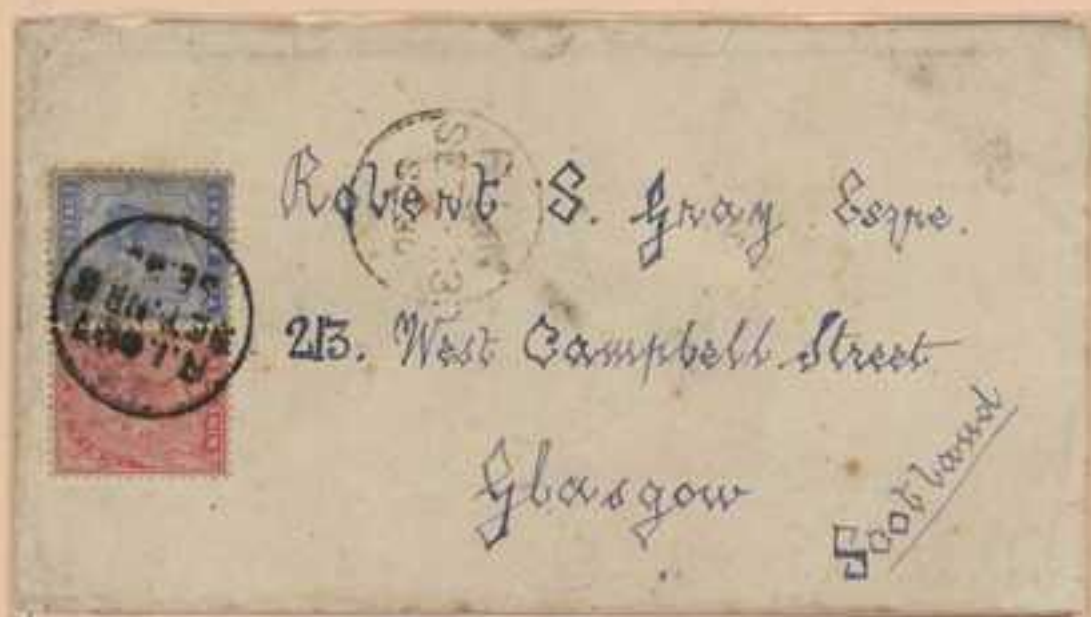 Robert S. Gray Esqre.
213. West Campbell Street
Glasgow
Scotland